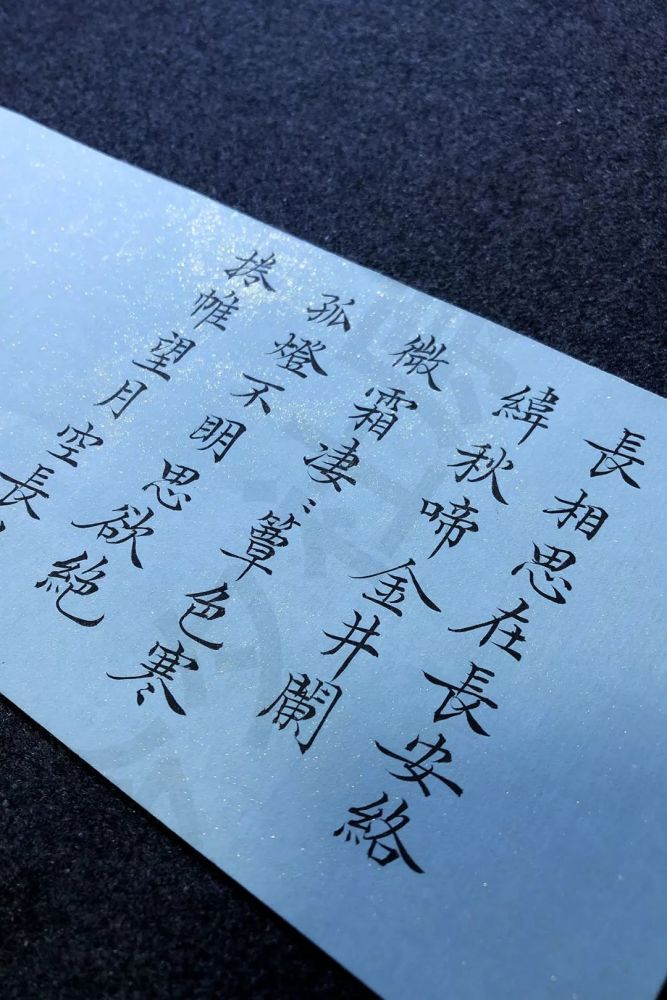 長相思在長安絡
緯秋啼金井闌
微霜凄〻簟色寒
孤燈不明思欲絶
捲帷望月空長